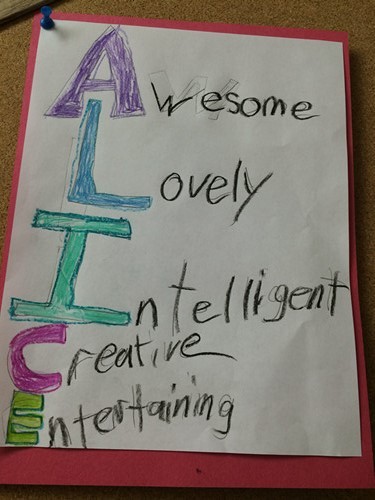 Awesome
Lovely
Intelligent
Creative
Entertaining